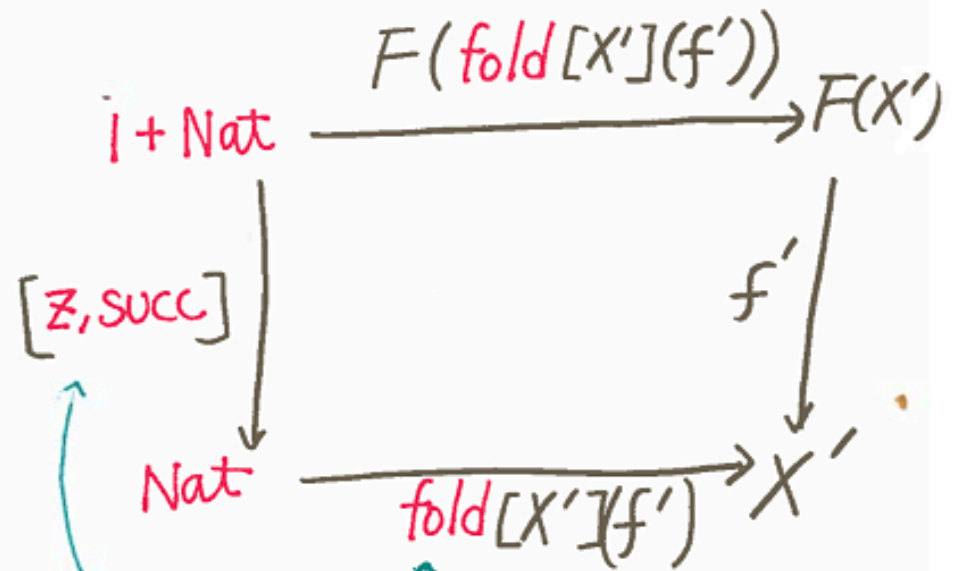 F(fold[X'](f'))
1 + Nat F(X')
[z, succ] f'
Nat X'
fold[X'](f')